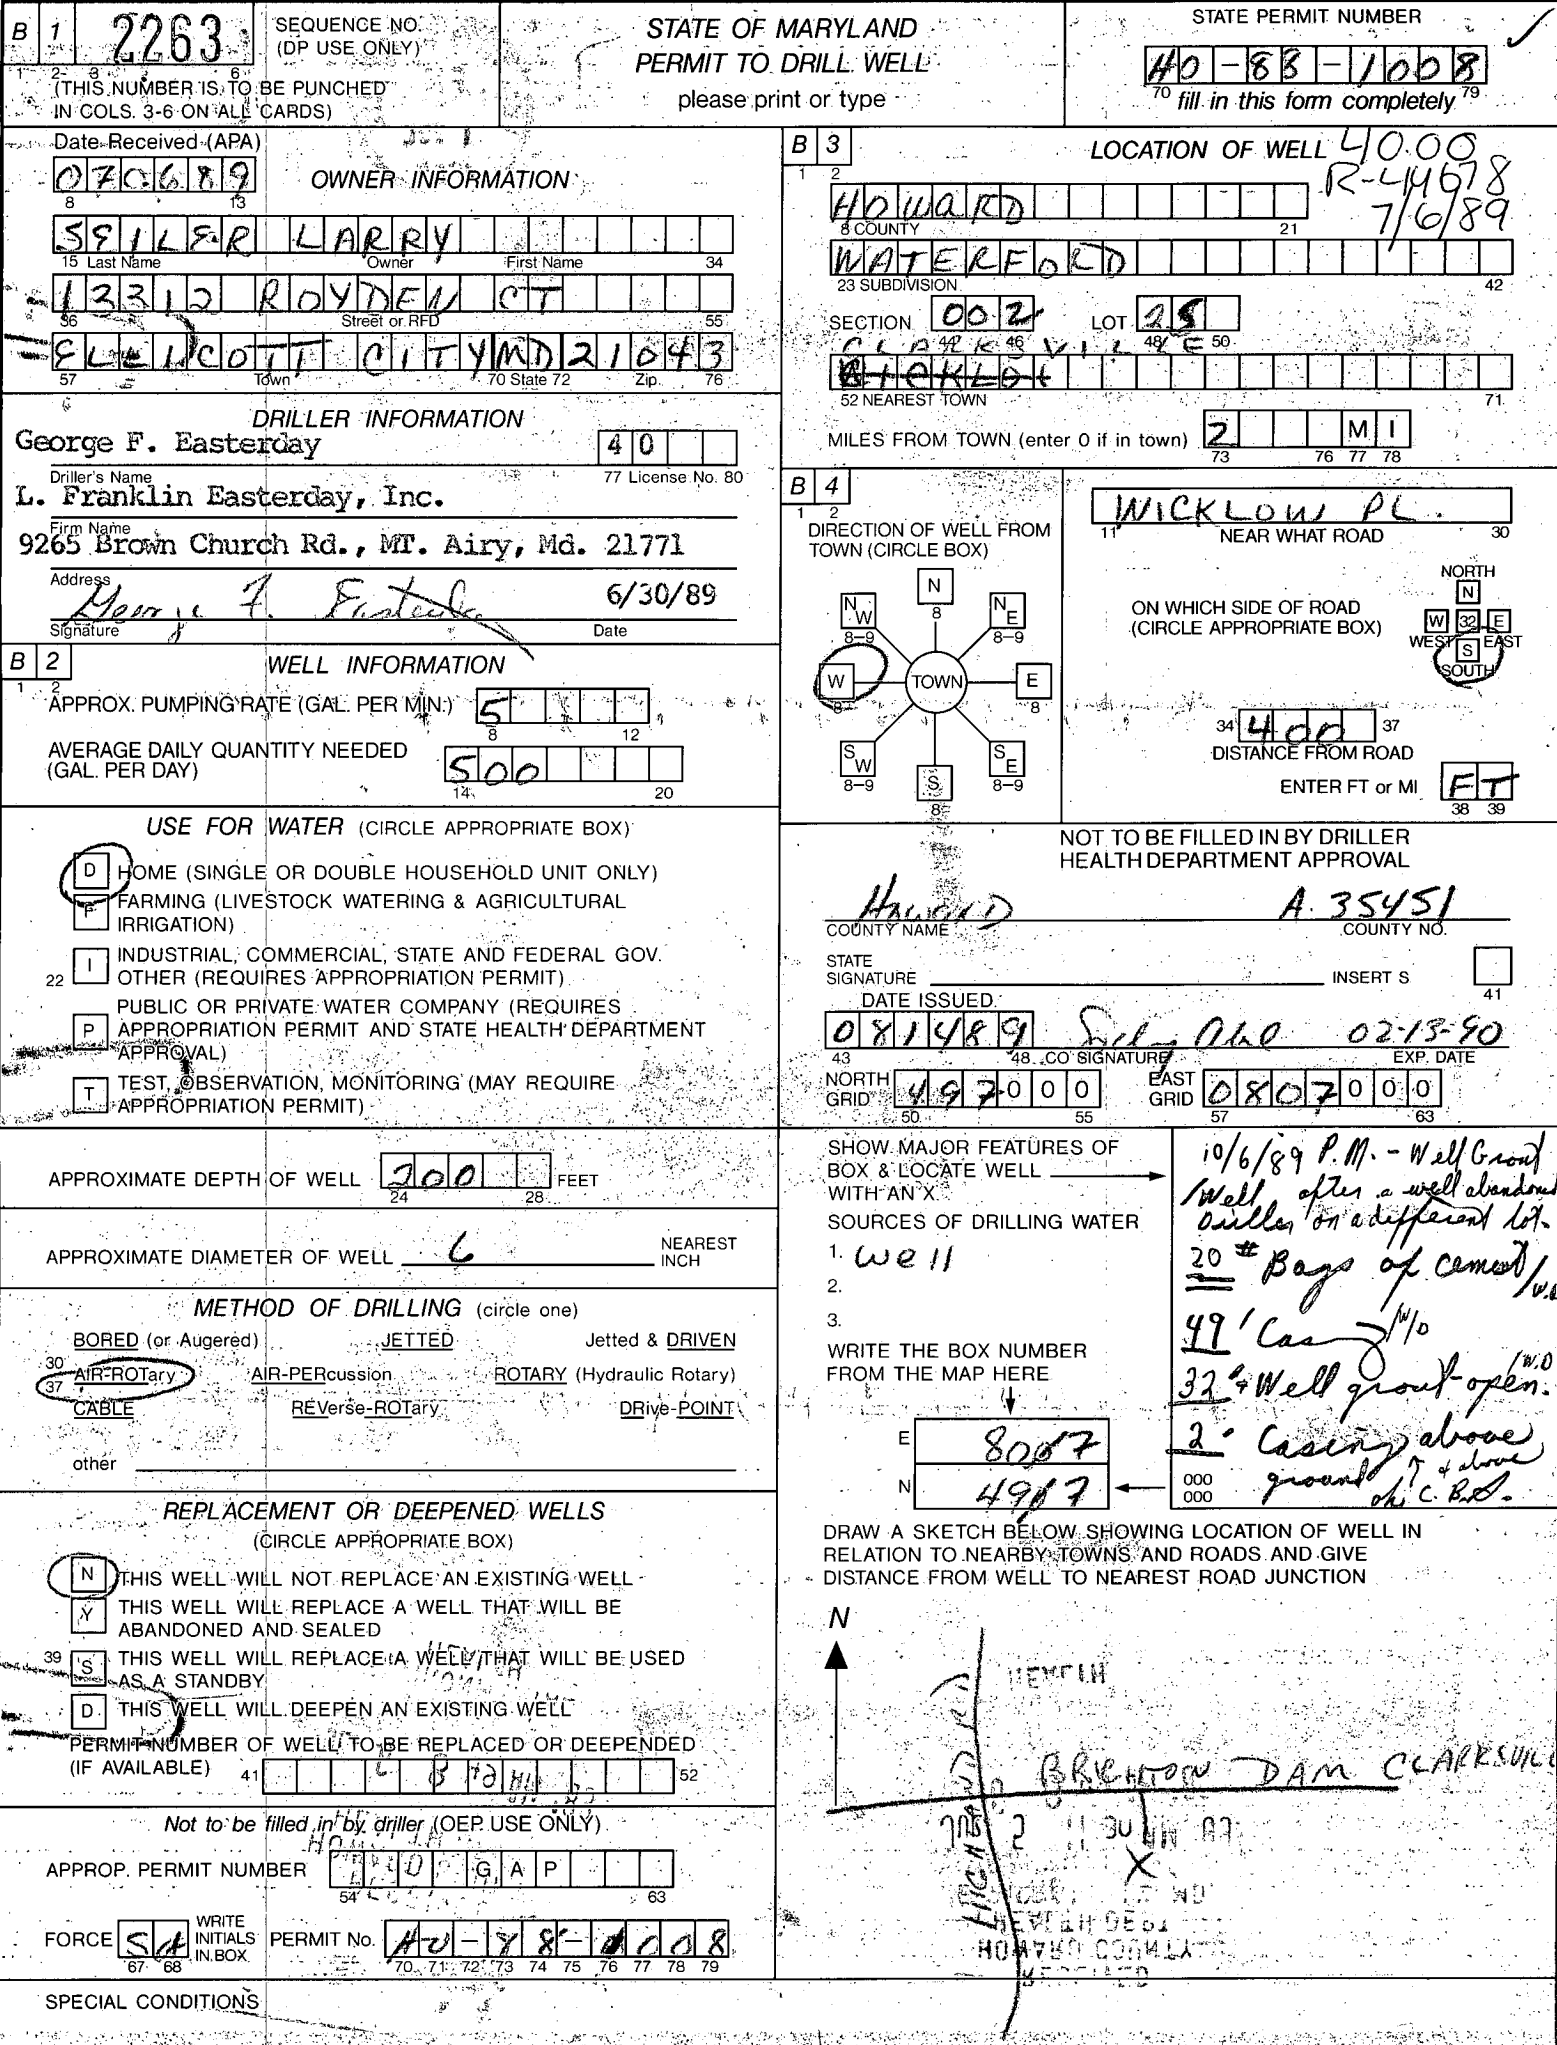 B 1 2263 SEQUENCE NO. (DP USE ONLY)
1 2 3 6
(THIS NUMBER IS TO BE PUNCHED
IN COLS. 3-6 ON ALL CARDS)
STATE OF MARYLAND
PERMIT TO DRILL WELL
please print or type
STATE PERMIT NUMBER
HO-88-1008
70 79
fill in this form completely
Date Received (APA)
070689
8 13
OWNER INFORMATION
SEILER LARRY
15 Last Name Owner First Name 34
12312 ROYDEN CT
36 Street or RFD 55
ELLICOTT CITY MD 21043
57 Town 70 State 72 Zip 76
DRILLER INFORMATION
George F. Easterday 40
Driller's Name 77 License No. 80
L. Franklin Easterday, Inc.
Firm Name
9265 Brown Church Rd., MT. Airy, Md. 21771
Address
George F. Easterday 6/30/89
Signature Date
B 2 WELL INFORMATION
1 2
APPROX. PUMPING RATE (GAL. PER MIN.) 5
8 12
AVERAGE DAILY QUANTITY NEEDED
(GAL. PER DAY) 500
14 20
USE FOR WATER (CIRCLE APPROPRIATE BOX)
D HOME (SINGLE OR DOUBLE HOUSEHOLD UNIT ONLY)
F FARMING (LIVESTOCK WATERING & AGRICULTURAL
IRRIGATION)
22 I INDUSTRIAL, COMMERCIAL, STATE AND FEDERAL GOV.
OTHER (REQUIRES APPROPRIATION PERMIT)
P PUBLIC OR PRIVATE WATER COMPANY (REQUIRES
APPROPRIATION PERMIT AND STATE HEALTH DEPARTMENT
APPROVAL)
T TEST, OBSERVATION, MONITORING (MAY REQUIRE
APPROPRIATION PERMIT)
APPROXIMATE DEPTH OF WELL 200 FEET
24 28
APPROXIMATE DIAMETER OF WELL 6 NEAREST INCH
METHOD OF DRILLING (circle one)
BORED (or Augered) JETTED Jetted & DRIVEN
30 AIR-ROTary AIR-PERcussion ROTARY (Hydraulic Rotary)
37 CABLE REVerse-ROTary DRive-POINT
other
REPLACEMENT OR DEEPENED WELLS
(CIRCLE APPROPRIATE BOX)
N THIS WELL WILL NOT REPLACE AN EXISTING WELL
Y THIS WELL WILL REPLACE A WELL THAT WILL BE
ABANDONED AND SEALED
39 S THIS WELL WILL REPLACE A WELL THAT WILL BE USED
AS A STANDBY
D THIS WELL WILL DEEPEN AN EXISTING WELL
PERMIT NUMBER OF WELL TO BE REPLACED OR DEEPENDED
(IF AVAILABLE) 41 52
Not to be filled in by driller (OEP USE ONLY)
APPROP. PERMIT NUMBER GAP
54 63
FORCE WRITE INITIALS IN BOX PERMIT No. HO-88-1008
67 68 70 71 72 73 74 75 76 77 78 79
SPECIAL CONDITIONS
B 3 LOCATION OF WELL 40.00
1 2 R-44678
7/6/89
HOWARD
8 COUNTY 21
WATERFORD
23 SUBDIVISION 42
SECTION 002 LOT 25
44 46 48 50
CLARKSVILLE
52 NEAREST TOWN 71
MILES FROM TOWN (enter 0 if in town) 2 MI
73 76 77 78
B 4
1 2
DIRECTION OF WELL FROM
TOWN (CIRCLE BOX)
N 8
NW 8-9 NE 8-9
W 8 TOWN E 8
SW 8-9 SE 8-9
S 8
WICKLOW PL.
11 NEAR WHAT ROAD 30
ON WHICH SIDE OF ROAD
(CIRCLE APPROPRIATE BOX)
NORTH
N
W 32 E
WEST S EAST
SOUTH
34 400 37
DISTANCE FROM ROAD
ENTER FT or MI FT
38 39
NOT TO BE FILLED IN BY DRILLER
HEALTH DEPARTMENT APPROVAL
Howard A 35451
COUNTY NAME COUNTY NO.
STATE
SIGNATURE INSERT S
41
DATE ISSUED
081489 02-13-90
43 48 CO SIGNATURE EXP. DATE
NORTH GRID 497000 EAST GRID 0807000
50 55 57 63
SHOW MAJOR FEATURES OF
BOX & LOCATE WELL
WITH AN X
SOURCES OF DRILLING WATER
1. well
2.
3.
WRITE THE BOX NUMBER
FROM THE MAP HERE
E 8007
N 4917
000
000
10/6/89 P.M. - Well Grout
/Well after a well abandoned
Driller on a different lot.
20 # Bags of cement /W.D
49' Casing W/D
32' Well grout open. /W.D
2' Casing above
ground & above
ok C.B.S.
DRAW A SKETCH BELOW SHOWING LOCATION OF WELL IN
RELATION TO NEARBY TOWNS AND ROADS AND GIVE
DISTANCE FROM WELL TO NEAREST ROAD JUNCTION
N
HIGHLAND RD
BRIGHTON DAM CLARKSVILLE
X
HEALTH DEPT
HOWARD COUNTY
RECEIVED